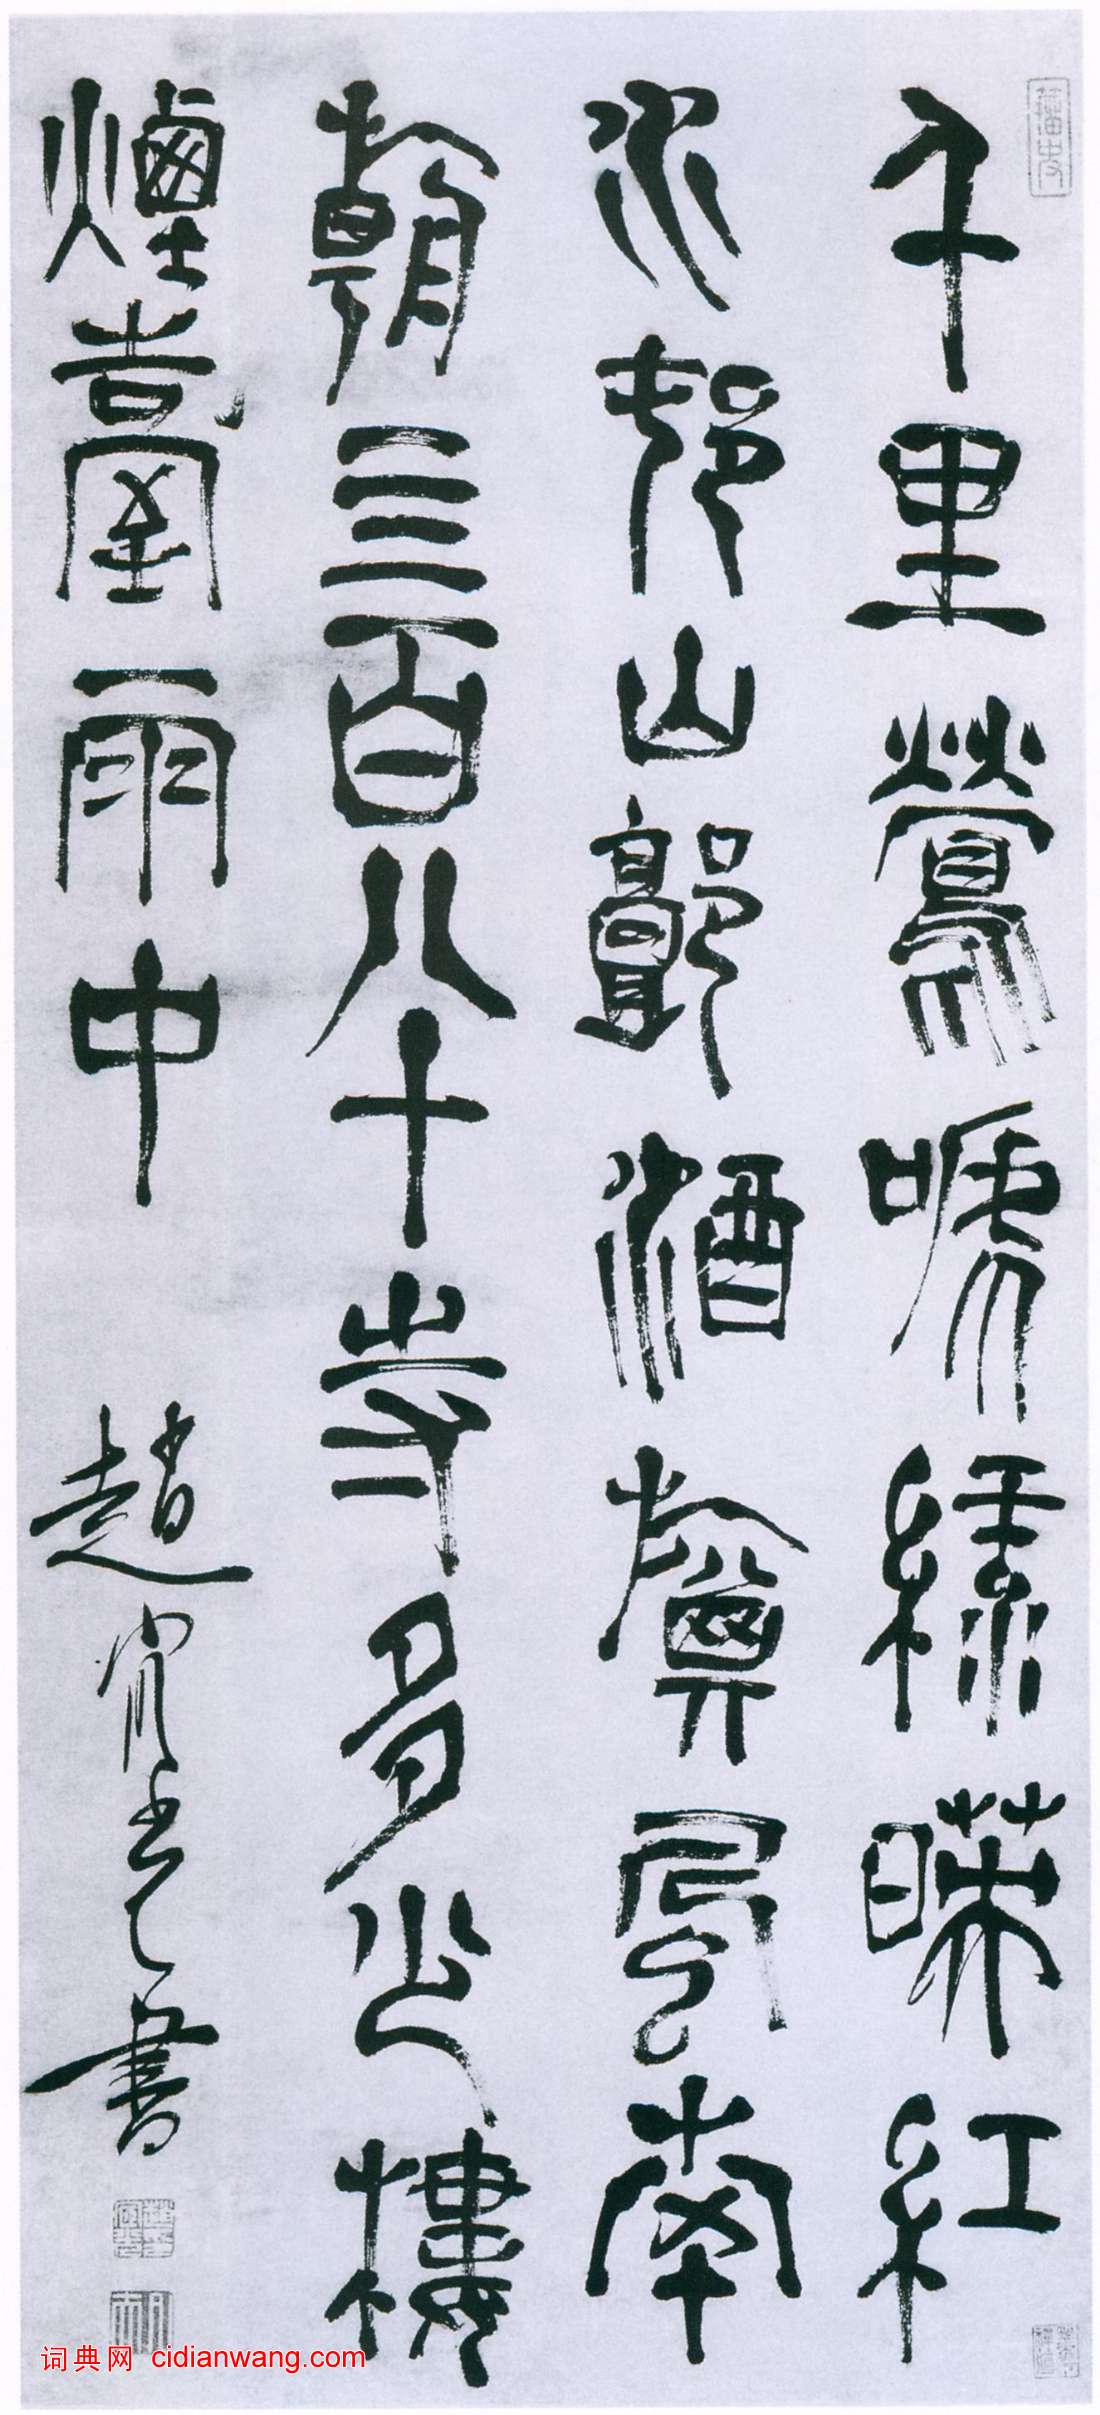 千里鶯嗁綠暎紅
水邨山郭酒旗風南
朝亖百八十寺多少樓
煙臺雨中
趙宧光書
词典网 cidianwang.com